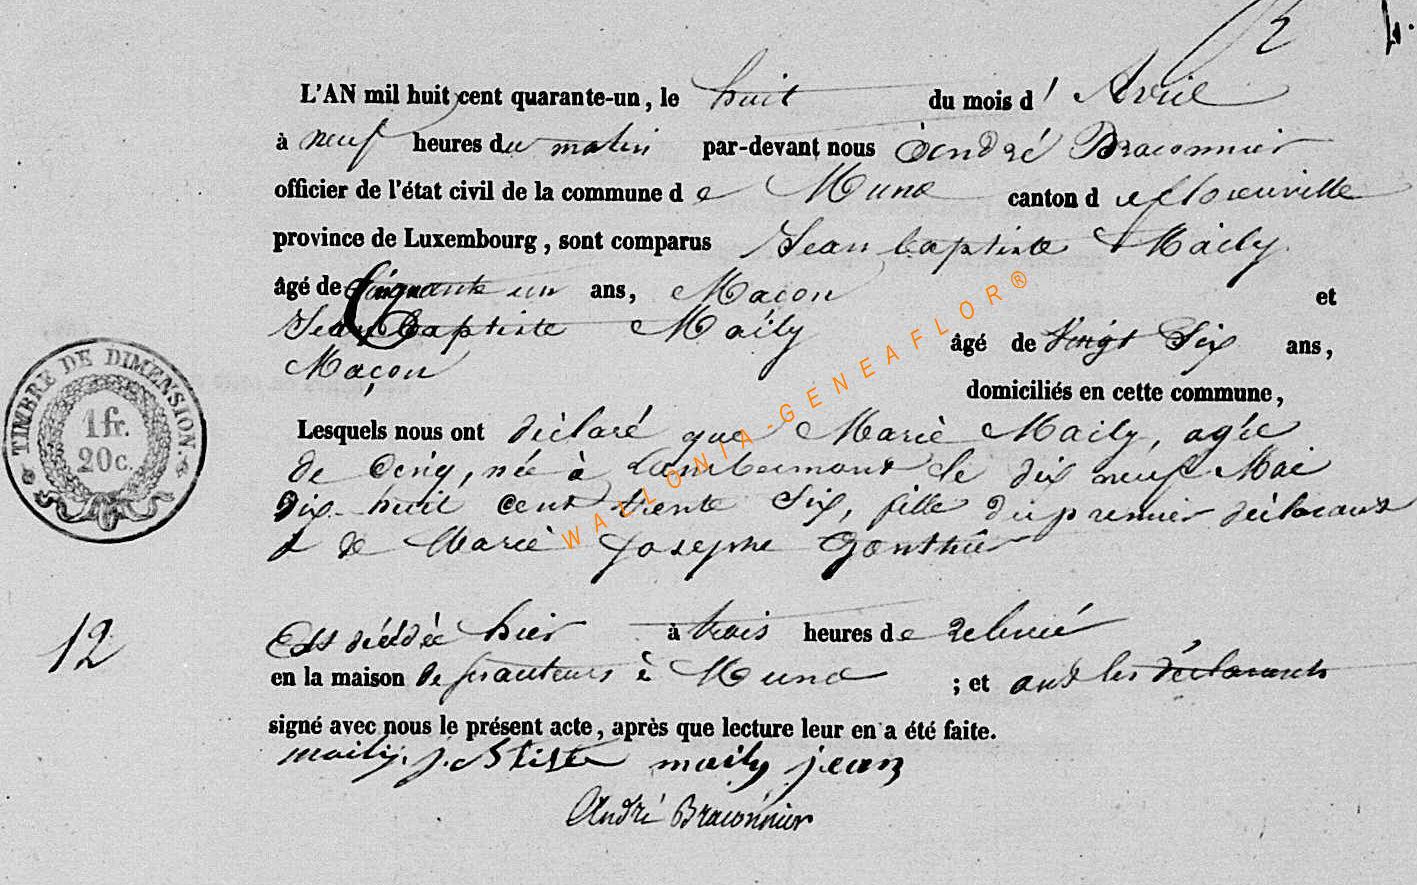 L'AN mil huit cent quarante-un, le huit du mois d' Avril
à neuf heures du matin par-devant nous André Braconnier
officier de l'état civil de la commune de Muno canton de florenville
province de Luxembourg, sont comparus Jean baptiste Maily
âgé de Cinquante un ans, Macon et
Jean Baptiste Maily âgé de Vingt Six ans,
Maçon
domiciliés en cette commune,
Lesquels nous ont déclaré que Marie Maily, agée
de Cinq, née à Lambermont le dix neuf Mai
Dix-huit cent trente Six, fille du premier déclarant
& de Marie Josephe Gonthier
12
Est décédée hier à trois heures de relevée
en la maison de Muno ; et ont les déclarants
signé avec nous le présent acte, après que lecture leur en a été faite.
maily j. btiste maily jean
André Braconnier
TIMBRE DE DIMENSION.
1 fr.
20 c.
WALLONIA-GENEAFLOR®